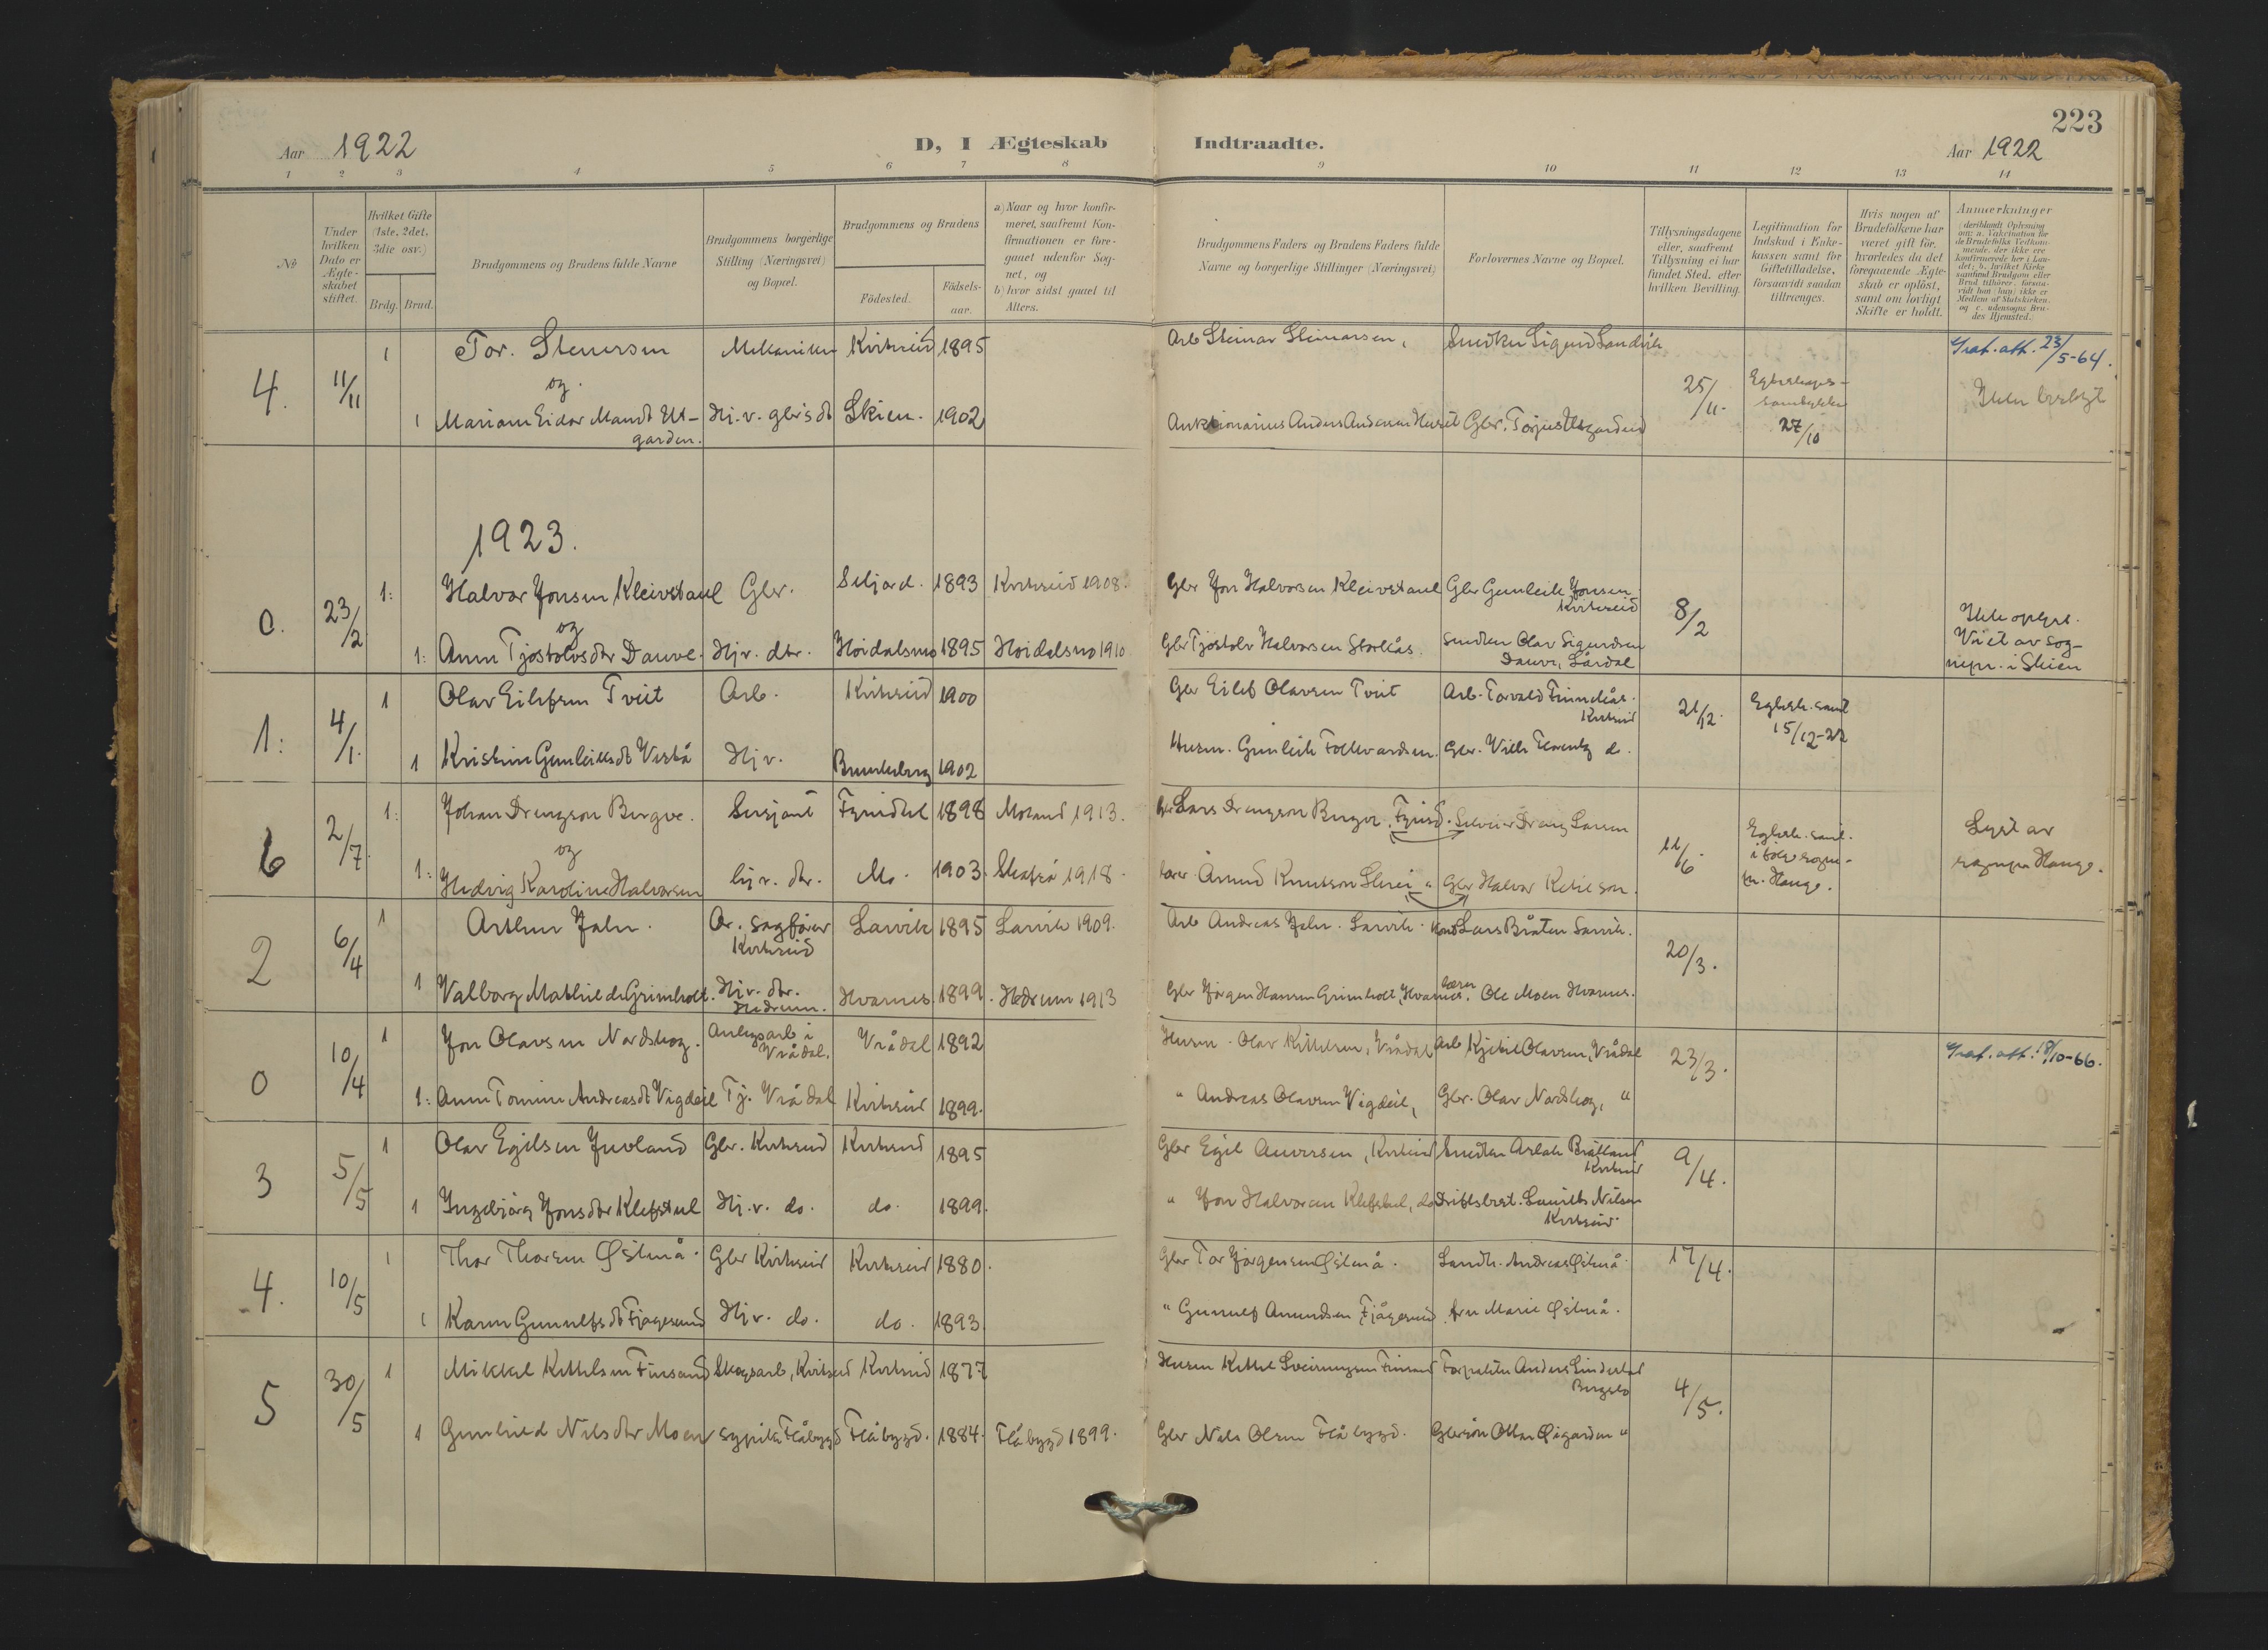 223
Aar 1922
D, I Ægteskab Indtraadte.
Aar 1922
1 2 3 4 5 6 7 8 9 10 11 12 13 14
No
Under hvilken Dato er Ægteskabet stiftet.
Hvilket Gifte (1ste, 2det, 3die osv.)
Brdg. Brud.
Brudgommens og Brudens fulde Navne
Brudgommens borgerlige Stilling (Næringsvei) og Bopæl.
Brudgommens og Brudens
Fødested.
Fødselsaar.
a) Naar og hvor konfirmeret, saafremt Konfirmationen er foregaaet udenfor Sognet, og
b) hvor sidst gaaet til Alters.
Brudgommens Faders og Brudens Faders fulde Navne og borgerlige Stillinger (Næringsvei)
Forlovernes Navne og Bopæl.
Tillysningsdagene eller, saafremt Tillysning ei har fundet Sted, efter hvilken Bevilling.
Legitimation for Indskud i Enkekassen samt for Giftetilladelse, forsaavidt saadan tiltrænges.
Hvis nogen af Brudefolkene har været gift før, hvorledes da det foregaaende Ægteskab er opløst, samt om lovligt Skifte er holdt.
Anmerkninger (deriblandt Oplysning om: a. Vakcination for de Brudefolks Vedkommende, der ikke ere konfirmerede her i Landet; b. hvilket Kirkesamfund Brudgom eller Brud tilhører, forsaavidt han (hun) ikke er Medlem af Statskirken, og c. udensogns Brudes Hjemsted.)
4. 11/11 1 Tor. Steinarsen Mekaniker Kviteseid 1895 Arb Steinar Steinarsen, Snedker Sigurd Sandvik 25/11. Egteskaps- samtykke 27/10 23/5-64.
og
1 Mariam Eidor Mandt Utgarden. Hj.v. gbr's dt Skien. 1902 Auktionarius Anders Andersen Gbr. Torjus Utgarden
1923.
0. 23/2 1: Halvor Jonsen Kleivstaul Gbr. Seljord. 1893 Kviteseid 1908. Gbr Jon Halvorsen Kleivstaul Gbr Gunleik Jonsen Kviteseid 8/2
og
1: Anne Tjostolvsdtr Dauve. Hjv. dtr. Høidalsmo 1895 Høidalsmo 1910 Gbr Tjostolv Halvorsen Storkås. Snedker Olav Sigurdsen Dauve, Lårdal Ikke oplyst. Viet av sognepr. i Skien
1: 4/1. 1 Olav Eilefsen Tveit Arb. Kviteseid 1900 Gbr Eilef Olavsen Tveit Arb. Torvald Finnekås. Kviteseid 21/12. Egtesk. samt 15/12-22
1 Kristine Gunleiksdt Vestå Hjv. Brunkeberg 1902 Husm. Gunleik Folkvardsen. Gbr. do.
6 2/7. 1: Johan Drengson Bergve. Sersjant Fyrisdal 1898 Moland 1913. Gbr Lars Drengson Bergve, Fyrisd. Dreng Larsen 11/6. Egtesk. samt. ifølge sognepr. Hauge. Lyst av sognepr Hauge.
og
1: Hedvig Karoline Halvorsen hjv. dtr. Mo. 1903. Skafså 1918. Lærer Åmund Knutson Skrei " Gbr Halvor Ketilson.
2 6/4 1 Arthur Jahr. O.r. sagfører Kviteseid Larvik 1895 Larvik 1909. Arb Andreas Jahr. Larvik. Lars Bråten Larvik. 20/3.
1 Valborg Mathilde Grimholt. Hjv. dtr. Hedrum. Hvarnes. 1899. Hedrum 1913 Gbr Jørgen Hansen Grimholt, Hvarnes. Lærer Ole Moen Hvarnes.
0 10/4 1 Jon Olavsen Nordskog. Anlegsarb i Vrådal. Vrådal 1892 Husm. Olav Kittilsen, Vrådal Arb Kjetil Olavsen, Vrådal 23/3. 18/10-66.
1: Anne Tomine Andreasdt Vigdeil Tj. Vrådal Kviteseid 1899. " Andreas Olavsen Vigdeil, Gbr. Olav Nordskog, "
3 5/5 1 Olav Egilsen Juvland Gbr. Kviteseid Kviteseid 1895 Gbr Egil Auversen, Kviteseid Snedker Aslak Bråtland Kviteseid 9/4.
1 Ingebjørg Jonsdtr Klefstul Hj.v. do. do. 1899. " Jon Halvorsen Klefstul, do Driftsbest. Nilsen Kviteseid
4. 10/5 1 Thor Thorsen Øilmå. Gbr Kviteseid Kviteseid 1880. Gbr Tor Jørgensen Øilmå. Landh. Andreas Øilmå. 17/4.
1 Karen Gunnulfsdt Fjågesund Hjv. do. do. 1893. " Gunnulf Amundsen Fjågesund fru Marie Øilmå.
5 30/5 1 Mikkel Kittelsen Finsand Skogsarb, Kviteseid Kviteseid 1877 Husm Kittel Sveinungsen Finsand Forpakter Anders 4/5.
1 Gunhild Nilsdtr Moen sypike Flåbygd Flåbygd. 1884. Flåbygd 1899. Gbr Nils Olsen Flåbygd. Gbrsøn Øigarden "